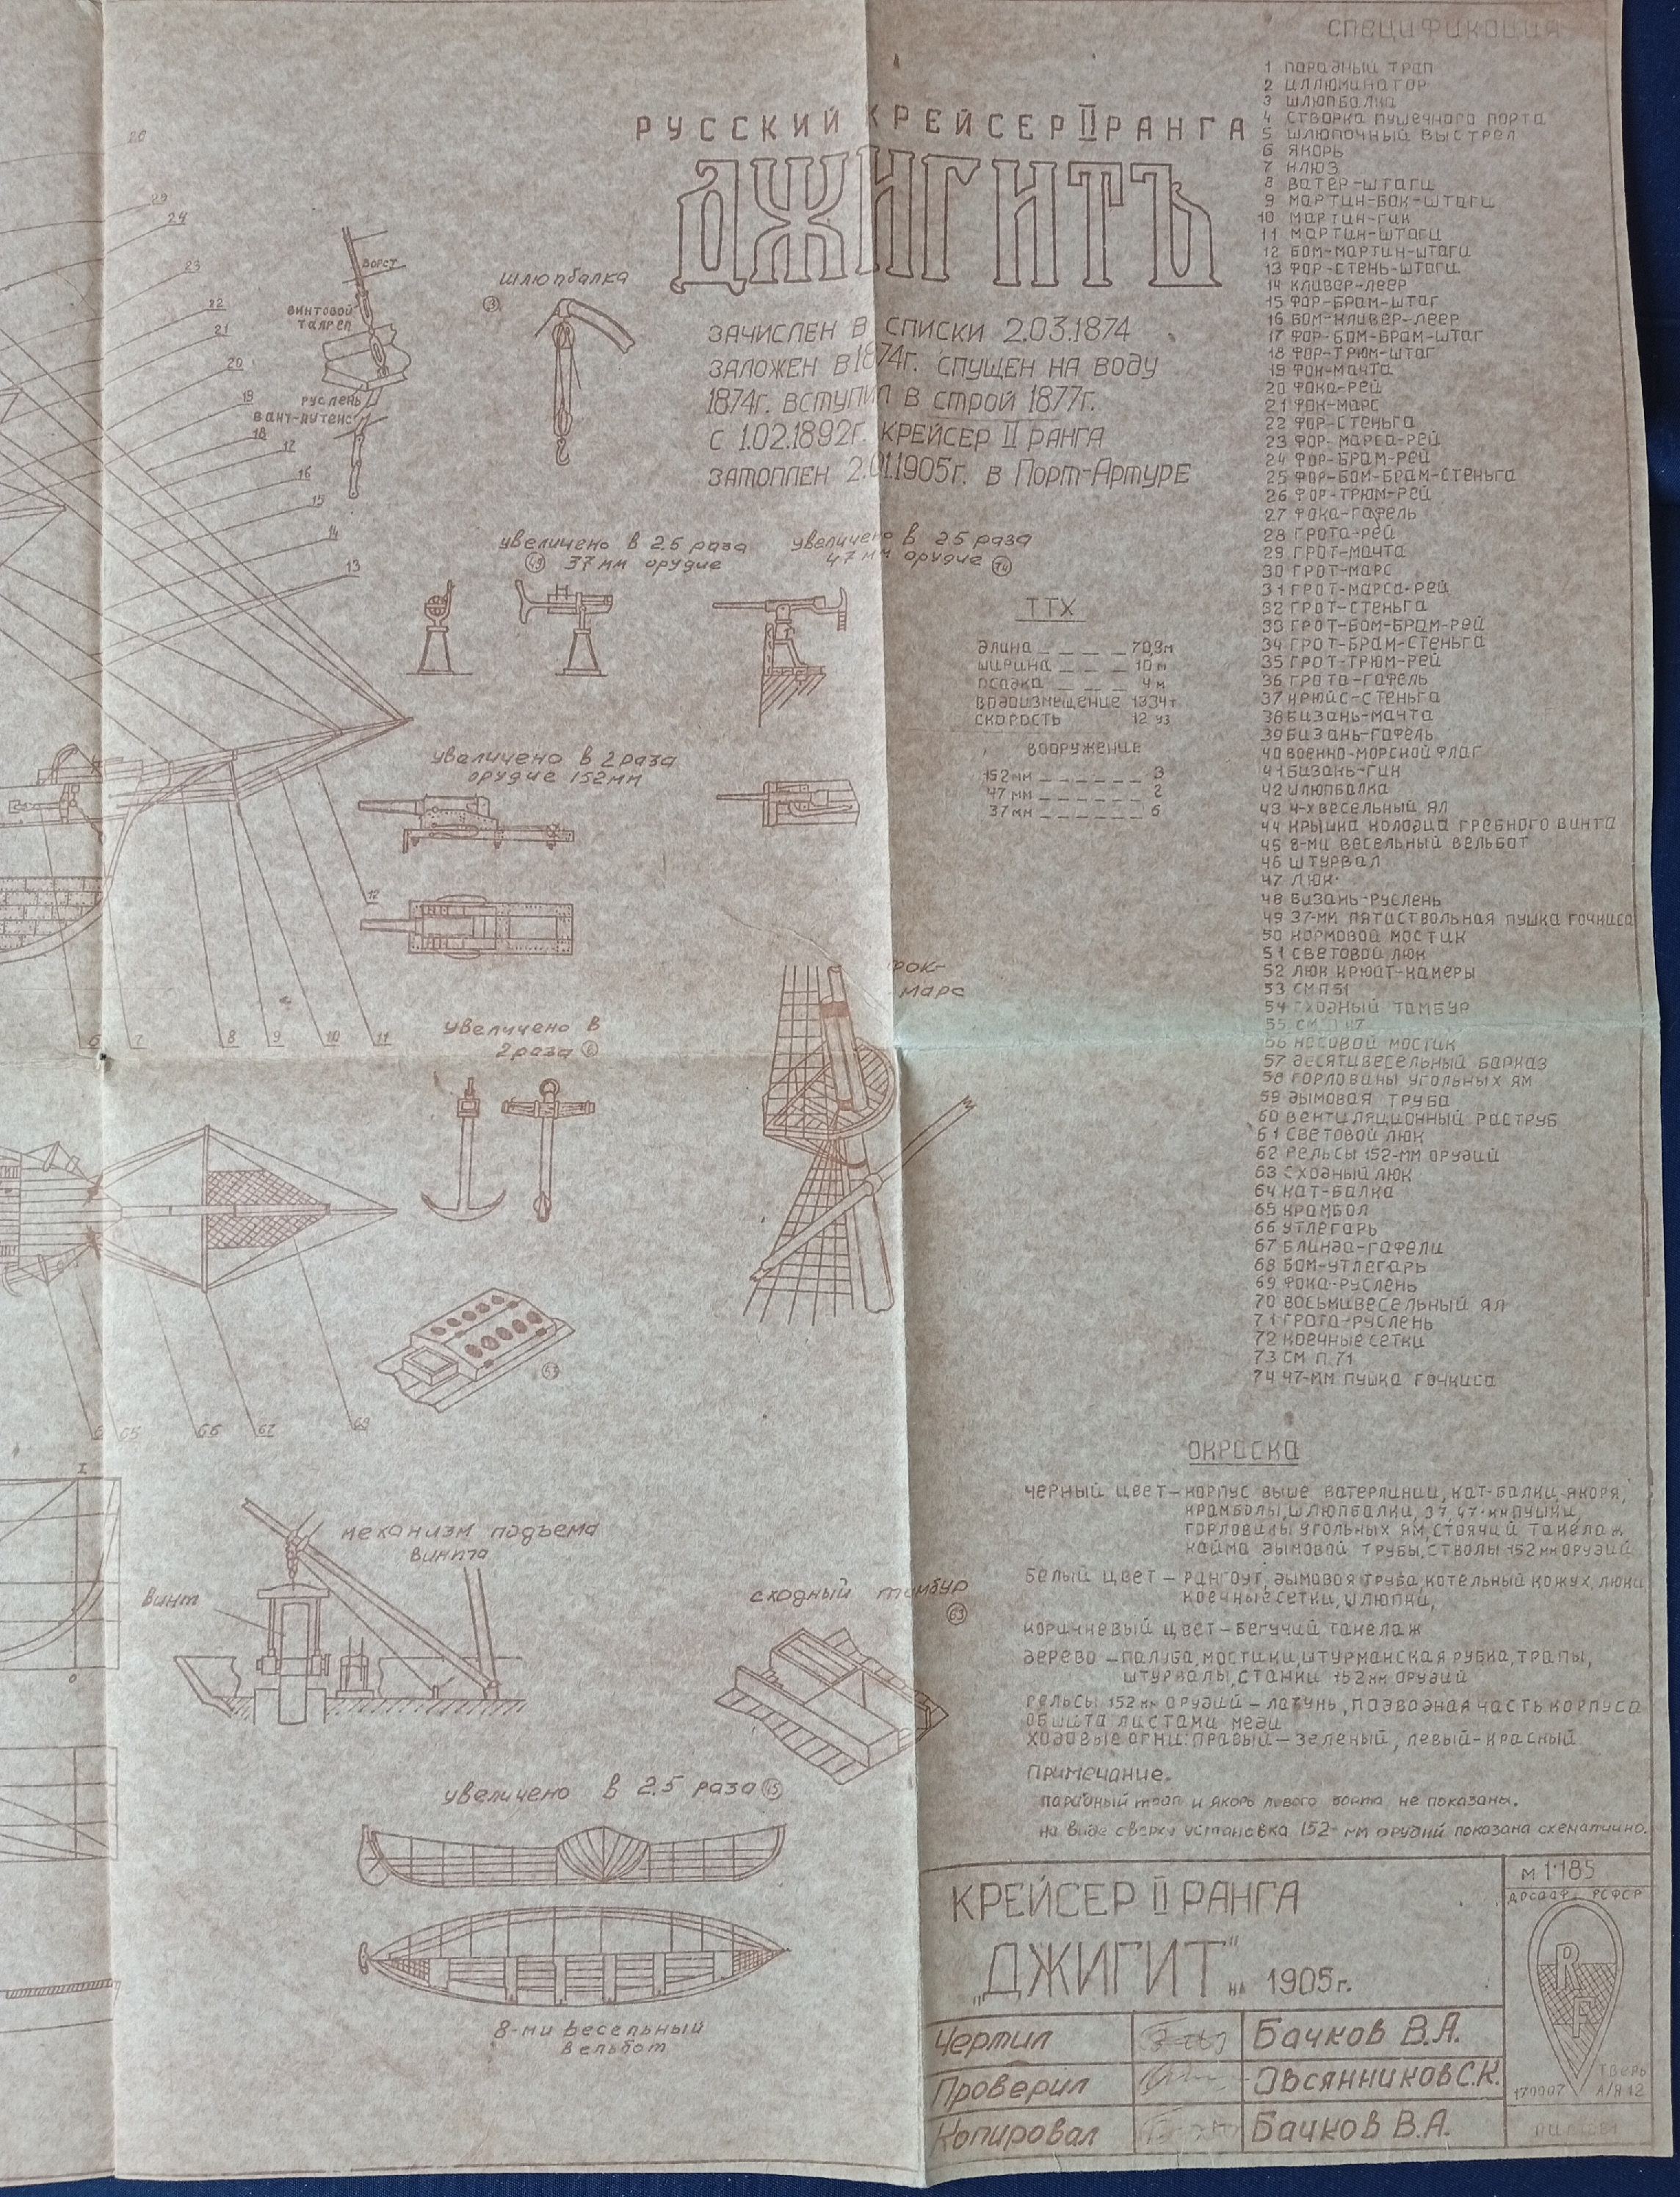 СПЕЦИФИКАЦИЯ
РУССКИЙ КРЕЙСЕР II РАНГА
ДЖИГИТЪ
ЗАЧИСЛЕН В СПИСКИ 2.03.1874
ЗАЛОЖЕН В 1874г. СПУЩЕН НА ВОДУ
1874г. ВСТУПИЛ В СТРОЙ 1877г.
С 1.02.1892г. КРЕЙСЕР II РАНГА
ЗАТОПЛЕН 2.01.1905г. в Порт-Артуре
1 ПАРАДНЫЙ ТРАП
2 ИЛЛЮМИНАТОР
3 ШЛЮПБАЛКА
4 СТВОРКА ПУШЕЧНОГО ПОРТА
5 ШЛЮПОЧНЫЙ ВЫСТРЕЛ
6 ЯКОРЬ
7 КЛЮЗ
8 ВАТЕР-ШТАГИ
9 МАРТИН-БАК-ШТАГИ
10 МАРТИН-ГИК
11 МАРТИН-ШТАГИ
12 БОМ-МАРТИН-ШТАГИ
13 ФОР-СТЕНЬ-ШТАГИ
14 КЛИВЕР-ЛЕЕР
15 ФОР-БРАМ-ШТАГ
16 БОМ-КЛИВЕР-ЛЕЕР
17 ФОР-БОМ-БРАМ-ШТАГ
18 ФОР-ТРЮМ-ШТАГ
19 ФОК-МАЧТА
20 ФОКА-РЕЙ
21 ФОК-МАРС
22 ФОР-СТЕНЬГА
23 ФОР-МАРСА-РЕЙ
24 ФОР-БРАМ-РЕЙ
25 ФОР-БОМ-БРАМ-СТЕНЬГА
26 ФОР-ТРЮМ-РЕЙ
27 ФОКА-ГАФЕЛЬ
28 ГРОТА-РЕЙ
29 ГРОТ-МАЧТА
30 ГРОТ-МАРС
31 ГРОТ-МАРСА-РЕЙ
32 ГРОТ-СТЕНЬГА
33 ГРОТ-БОМ-БРАМ-РЕЙ
34 ГРОТ-БРАМ-СТЕНЬГА
35 ГРОТ-ТРЮМ-РЕЙ
36 ГРОТА-ГАФЕЛЬ
37 КРЮЙС-СТЕНЬГА
38 БИЗАНЬ-МАЧТА
39 БИЗАНЬ-ГАФЕЛЬ
40 ВОЕННО-МОРСКОЙ ФЛАГ
41 БИЗАНЬ-ГИК
42 ШЛЮПБАЛКА
43 4-ХВЕСЕЛЬНЫЙ ЯЛ
44 КРЫШКА КОЛОДЦА ГРЕБНОГО ВИНТА
45 8-МИ ВЕСЕЛЬНЫЙ ВЕЛЬБОТ
46 ШТУРВАЛ
47 ЛЮК
48 БИЗАНЬ-РУСЛЕНЬ
49 37-ММ ПЯТИСТВОЛЬНАЯ ПУШКА ГОЧКИСА
50 КОРМОВОЙ МОСТИК
51 СВЕТОВОЙ ЛЮК
52 ЛЮК КРЮЙТ-КАМЕРЫ
53 СМ П 51
54 СХОДНЫЙ ТАМБУР
55 СМ П 47
56 НОСОВОЙ МОСТИК
57 ДЕСЯТИВЕСЕЛЬНЫЙ БАРКАЗ
58 ГОРЛОВИНЫ УГОЛЬНЫХ ЯМ
59 ДЫМОВАЯ ТРУБА
60 ВЕНТИЛЯЦИОННЫЙ РАСТРУБ
61 СВЕТОВОЙ ЛЮК
62 РЕЛЬСЫ 152-ММ ОРУДИЙ
63 СХОДНЫЙ ЛЮК
64 КАТ-БАЛКА
65 КРАМБОЛ
66 УТЛЕГАРЬ
67 БЛИНДА-ГАФЕЛИ
68 БОМ-УТЛЕГАРЬ
69 ФОКА-РУСЛЕНЬ
70 ВОСЬМИВЕСЕЛЬНЫЙ ЯЛ
71 ГРОТА-РУСЛЕНЬ
72 КОЕЧНЫЕ СЕТКИ
73 СМ П.71
74 47-ММ ПУШКА ГОЧКИСА
ворст
винтовой
талреп
руслень
вант-путенс
шлюпбалка
3
увеличено в 2.5 раза
49 37 мм орудие
увеличено в 25 раза
47 мм орудие 74
ТТХ
длина 70,9м
ширина 10 м
осадка 4 м
водоизмещение 1334т
скорость 12 уз
вооружение
152 мм 3
47 мм 2
37 мм 6
увеличено в 2 раза
орудие 152мм
фок-
марс
увеличено в
2 раза 6
26
29
24
23
22
21
20
19
18
17
16
15
14
13
12
6 7 8 9 10 11
6 65 66 67 68
механизм подъема
винта
винт
сходный тамбур
63
увеличено в 2.5 раза 45
8-ми весельный
вельбот
ОКРАСКА
ЧЕРНЫЙ ЦВЕТ – КОРПУС ВЫШЕ ВАТЕРЛИНИИ, КАТ-БАЛКИ, ЯКОРЯ,
КРАМБОЛЫ, ШЛЮПБАЛКИ, 37, 47-мм ПУШКИ,
ГОРЛОВИНЫ УГОЛЬНЫХ ЯМ, СТОЯЧИЙ ТАКЕЛАЖ
КАЙМА ДЫМОВОЙ ТРУБЫ, СТВОЛЫ 152 мм ОРУДИЙ
БЕЛЫЙ ЦВЕТ – РАНГОУТ, ДЫМОВАЯ ТРУБА, КОТЕЛЬНЫЙ КОЖУХ, ЛЮКИ,
КОЕЧНЫЕ СЕТКИ, ШЛЮПКИ,
КОРИЧНЕВЫЙ ЦВЕТ – БЕГУЧИЙ ТАКЕЛАЖ
ДЕРЕВО – ПАЛУБА, МОСТИКИ, ШТУРМАНСКАЯ РУБКА, ТРАПЫ,
ШТУРВАЛЫ, СТАНКИ 152 мм ОРУДИЙ
РЕЛЬСЫ 152 мм ОРУДИЙ – ЛАТУНЬ, ПОДВОДНАЯ ЧАСТЬ КОРПУСА
ОБШИТА ЛИСТАМИ МЕДИ
ХОДОВЫЕ ОГНИ: ПРАВЫЙ – ЗЕЛЕНЫЙ, ЛЕВЫЙ – КРАСНЫЙ
Примечание.
парадный трап и якорь левого борта не показаны.
на виде сверху установка 152-мм орудий показана схематично.
КРЕЙСЕР II РАНГА
„ДЖИГИТ" на 1905г.
Чертил Бачков В.А.
Проверил Овсянников С.К.
Копировал Бачков В.А.
М 1:185
ДОСААФ РСФСР
RF
170007 ТВЕРЬ
А/Я 12